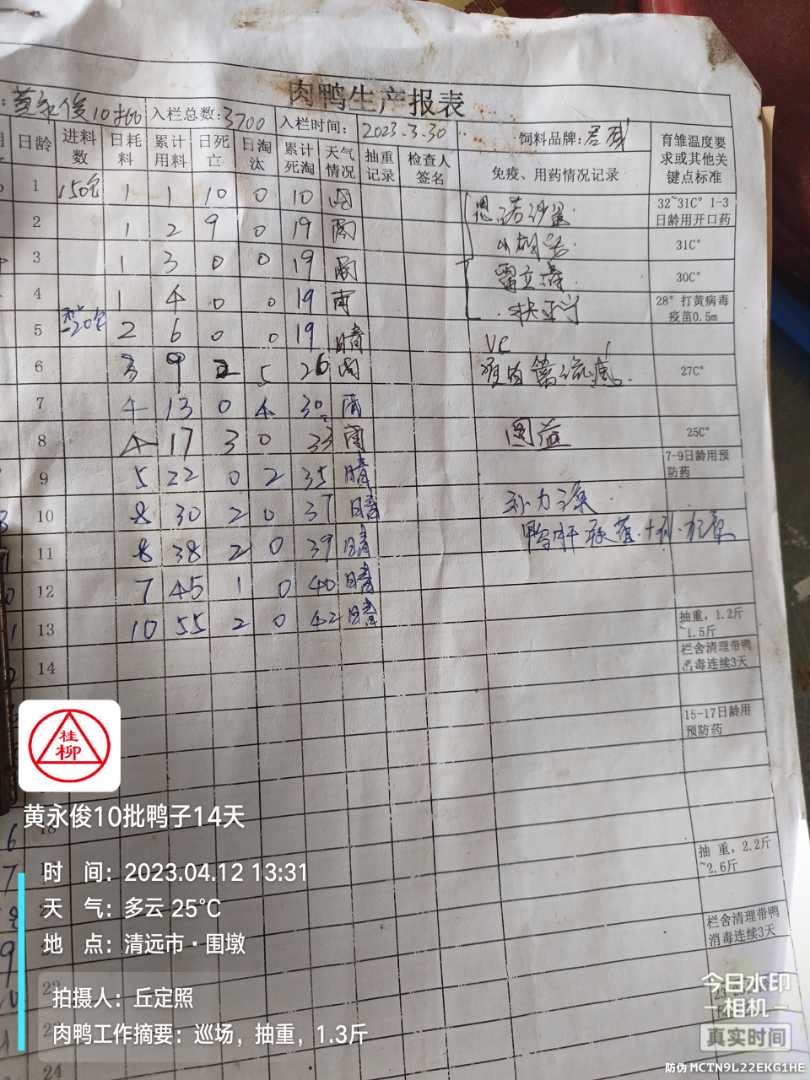 肉鸭生产报表
黄永俊10批 入栏总数:3700 入栏时间: 2023.3.30 饲料品牌: 育雏温度要求或其他关键点标准
日龄 进料数 日耗料 累计用料 日死亡 日淘汰 累计死淘 天气情况 抽重记录 检查人签名 免疫、用药情况记录
1 150包 1 1 10 0 10 雨 32~31C° 1-3日龄用开口药
2 1 2 9 0 19 雨 31C°
3 1 3 0 0 19 雨 30C°
4 1 4 0 0 19 雨 28° 打黄病毒疫苗0.5m
5 2 6 0 0 19 晴 VC
6 3 9 2 5 26 雨 27C°
7 4 13 0 4 30 雨
8 4 17 3 0 33 雨 25C°
9 5 22 0 2 35 晴 7-9日龄用预防药
10 8 30 2 0 37 晴
11 8 38 2 0 39 晴
12 7 45 1 0 40 晴
13 10 55 2 0 42 晴 抽重，1.2斤~1.5斤
14 栏舍清理带鸭消毒连续3天
15-17日龄用预防药
抽重，2.2斤~2.6斤
栏舍清理带鸭消毒连续3天
24
桂柳
黄永俊10批鸭子14天
时 间：2023.04.12 13:31
天 气：多云 25°C
地 点：清远市·围墩
拍摄人：丘定照
肉鸭工作摘要：巡场，抽重，1.3斤
今日水印
相机
真实时间
防伪 MCTN9L22EKG1HE